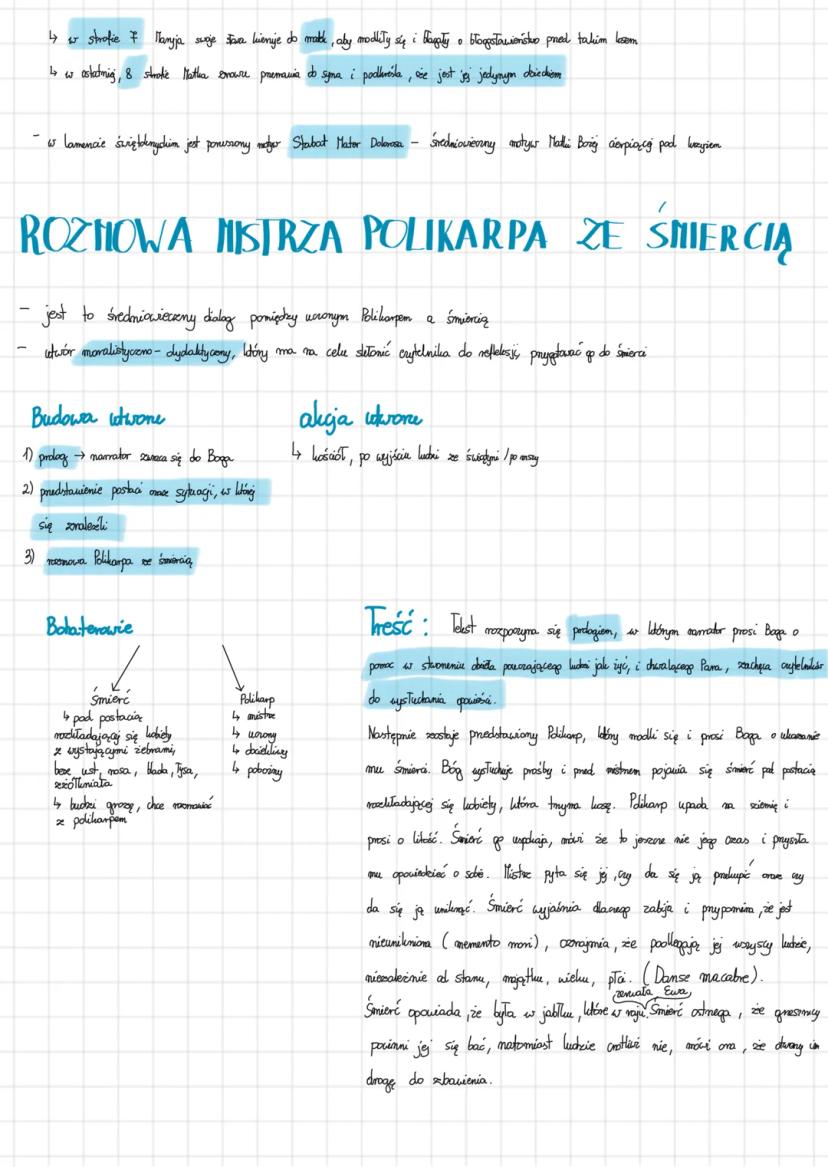 ↳ w strofie 7 Maryja swoje słowa kieruje do matek, aby modliły się i błagały o błogosławieństwo przed takim losem
↳ w ostatniej, 8 strofie Matka znowu przemawia do syna i podkreśla, że jest jej jedynym dzieckiem
- w lamencie świętokrzyskim jest poruszony motyw Stabat Mater Dolorosa - średniowieczny motyw Matki Bożej cierpiącej pod krzyżem
ROZMOWA MISTRZA POLIKARPA ZE ŚMIERCIĄ
- jest to średniowieczny dialog pomiędzy uczonym Polikarpem a śmiercią
- utwór moralistyczno-dydaktyczny, który ma na celu skłonić czytelnika do refleksji, przygotować go do śmierci
Budowa utworu
akcja utworu
1) prolog → narrator zwraca się do Boga
↳ kościół, po wyjściu ludzi ze świątyni / po mszy
2) przedstawienie postaci oraz sytuacji, w której
się znaleźli
3) rozmowa Polikarpa ze śmiercią
Bohaterowie
Śmierć
↳ pod postacią
rozkładającej się kobiety
z wystającymi żebrami,
bez ust, nosa, blada, łysa,
zżółkniała
↳ budzi grozę, chce rozmawiać
z polikarpem
Polikarp
↳ mistrz
↳ uczony
↳ dociekliwy
↳ pobożny
Treść: Tekst rozpoczyna się prologiem, w którym narrator prosi Boga o
pomoc w stworzeniu dzieła pouczającego ludzi jak żyć, i chwalącego Pana, zachęca czytelników
do wysłuchania opowieści.
Następnie zostaje przedstawiony Polikarp, który modli się i prosi Boga o ukazanie
mu śmierci. Bóg wysłuchuje prośby i przed mistrzem pojawia się śmierć pod postacią
rozkładającej się kobiety, która trzyma kosę. Polikarp upada na ziemię i
prosi o litość. Śmierć go uspokaja, mówi że to jeszcze nie jego czas i przyszła
mu opowiedzieć o sobie. Mistrz pyta się jej, czy da się ją przekupić oraz czy
da się ją uniknąć. Śmierć wyjaśnia dlaczego zabija i przypomina, że jest
nieunikniona (memento mori), oznajmia, że podlegają jej wszyscy ludzie,
niezależnie od stanu, majątku, wieku, płci. (Danse macabre).
zerwała Ewa
Śmierć opowiada, że była w jabłku, które w raju. Śmierć ostrzega, że grzesznicy
powinni jej się bać, natomiast ludzie cnotliwi nie, mówi ona, że otworzy im
drogę do zbawienia.